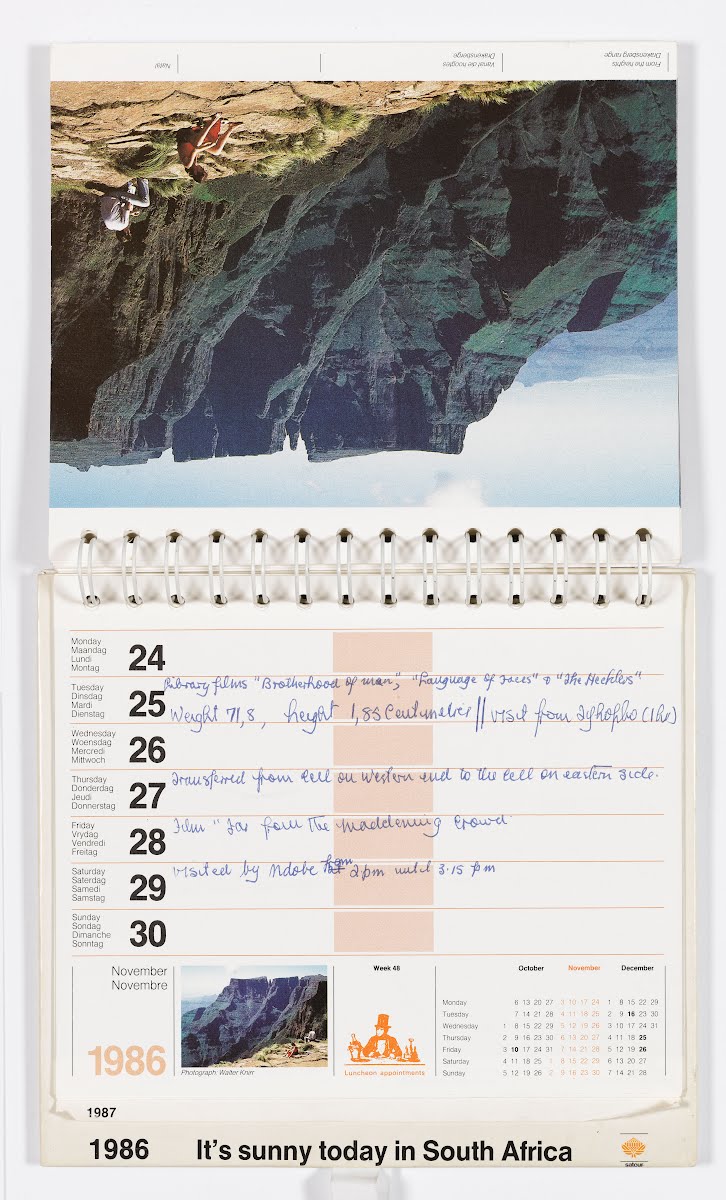 From the heights
Drakensberg range
Vanaf die hoogtes
Drakensberge
Natal
Monday
Maandag
Lundi
Montag
24
Library films "Brotherhood of man", "Language of faces" & "The Hecklers"
Tuesday
Dinsdag
Mardi
Dienstag
25
Weight 71,8, height 1,85 Centimetres || visit from (1 hr)
Wednesday
Woensdag
Mercredi
Mittwoch
26
Thursday
Donderdag
Jeudi
Donnerstag
27
Transferred from cell on western end to the cell on eastern side.
Friday
Vrydag
Vendredi
Freitag
28
Film "Far from the maddening crowd
Saturday
Saterdag
Samedi
Samstag
29
visited by Ndobe from 2 pm until 3.15 pm
Sunday
Sondag
Dimanche
Sonntag
30
November
Novembre
1986
Photograph: Walter Knirr
Week 48
Luncheon appointments
October November December
Monday 6 13 20 27 3 10 17 24 1 8 15 22 29
Tuesday 7 14 21 28 4 11 18 25 2 9 16 23 30
Wednesday 1 8 15 22 29 5 12 19 26 3 10 17 24 31
Thursday 2 9 16 23 30 6 13 20 27 4 11 18 25
Friday 3 10 17 24 31 7 14 21 28 5 12 19 26
Saturday 4 11 18 25 1 8 15 22 29 6 13 20 27
Sunday 5 12 19 26 2 9 16 23 30 7 14 21 28
1987
1986 It's sunny today in South Africa
satour